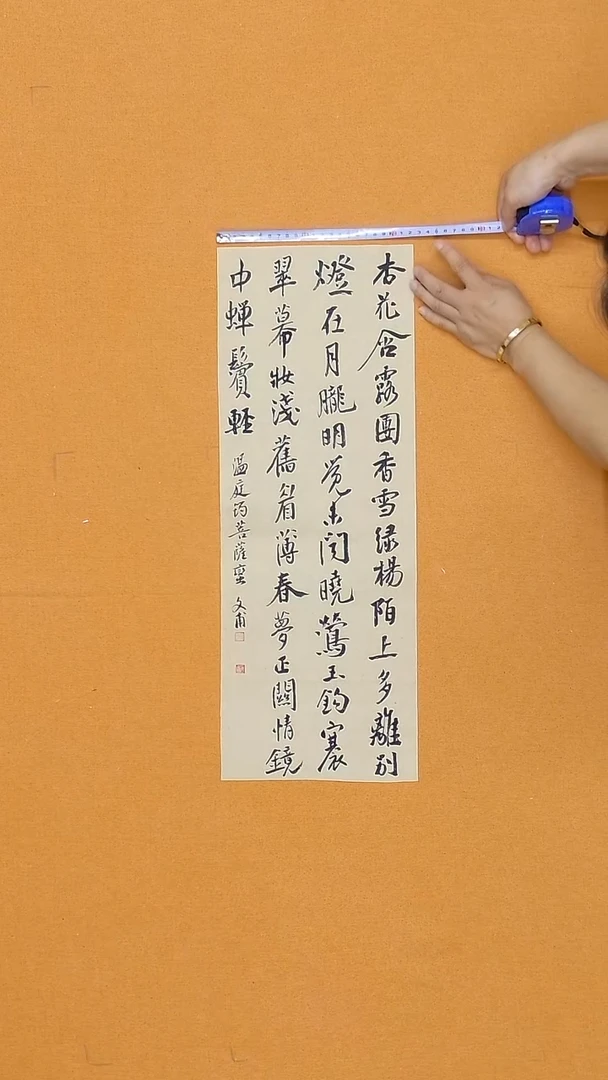 杏花含露團香雪绿楊陌上多離别
燈在月朧明覚来闻曉鶯玉鈎褰
翠幕妝淺舊眉薄春夢正關情鏡
中蝉鬢軽
温庭筠菩薩蛮 文甫